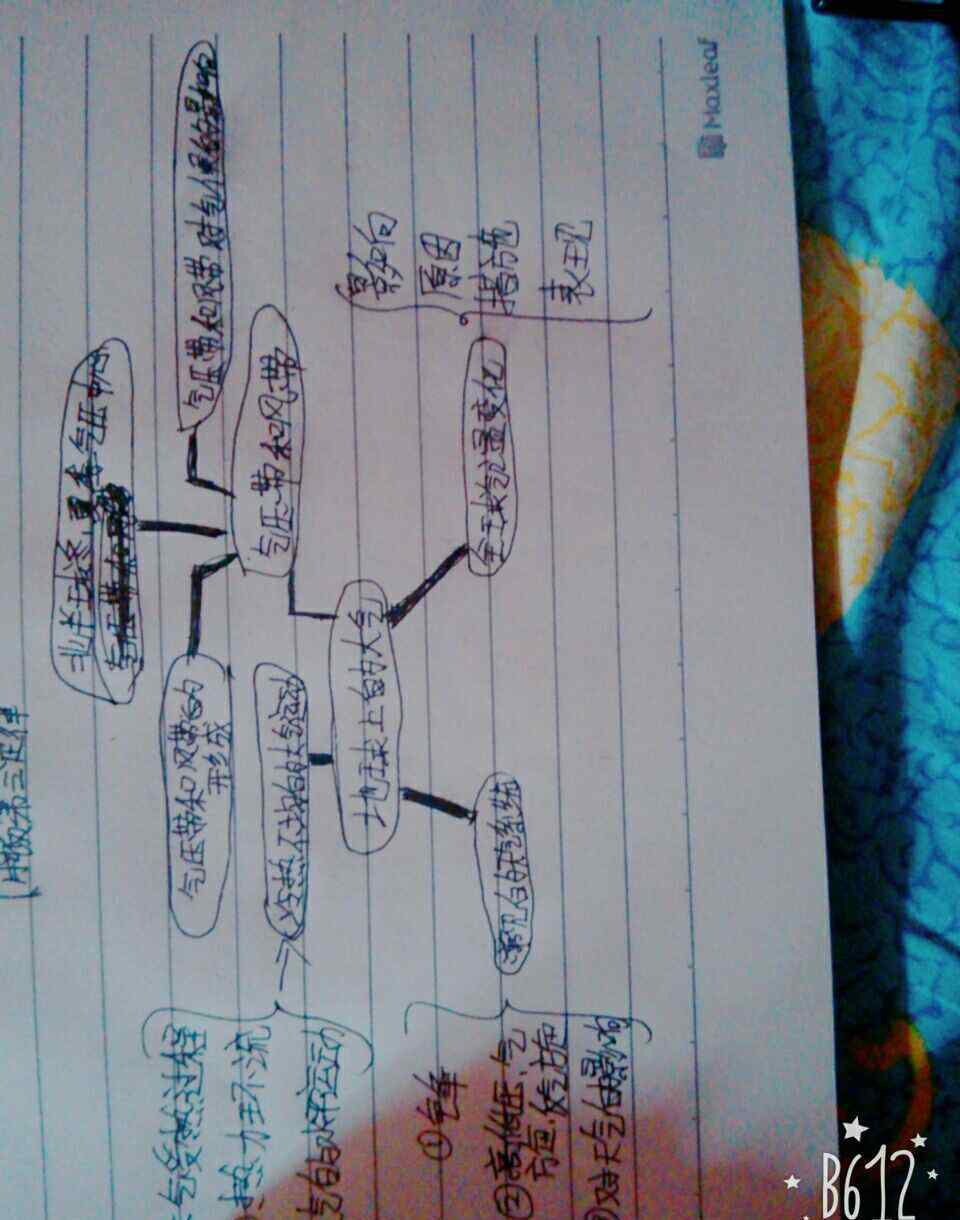 气压带和风带对气候的影响
北半球冬、夏季气压中心
气压带和风带
气压带和风带的
形成
影响
原因
措施
表现
全球气温变化
地球上的大气
冷热不均的大气运动
常见的天气系统
气受热过程
热力环流
气的水平运动
①气团
②高低压、气
对天气的影响
Maxleaf
B612